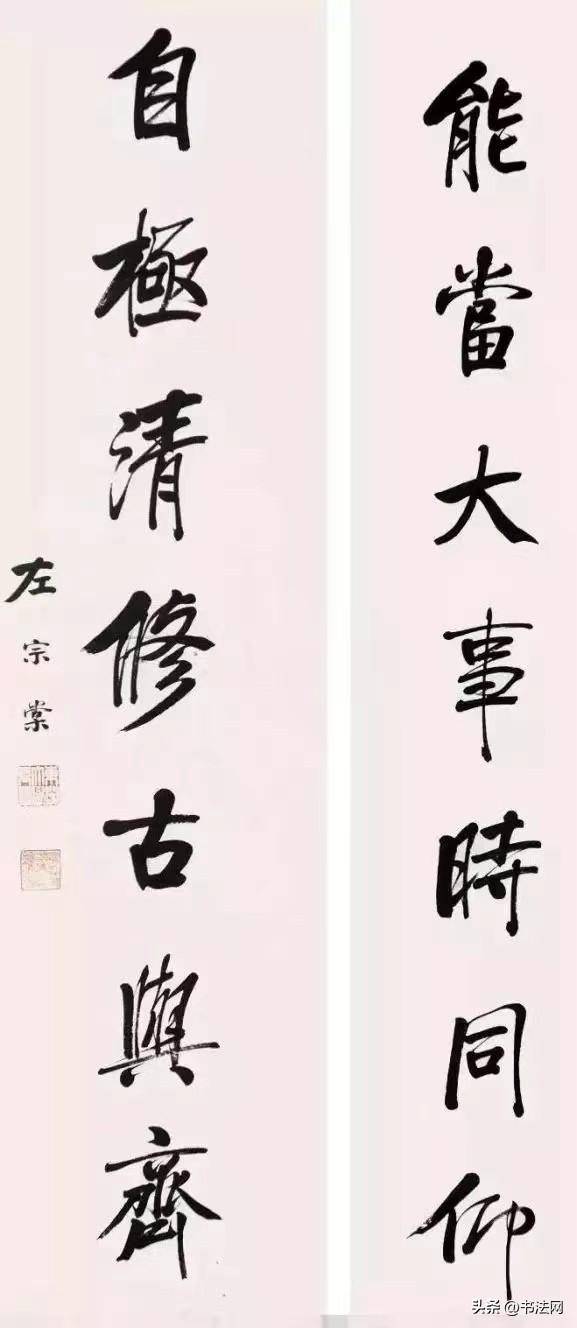 能當大事時同仰
自極清修古與齊
左宗棠
头条@书法网